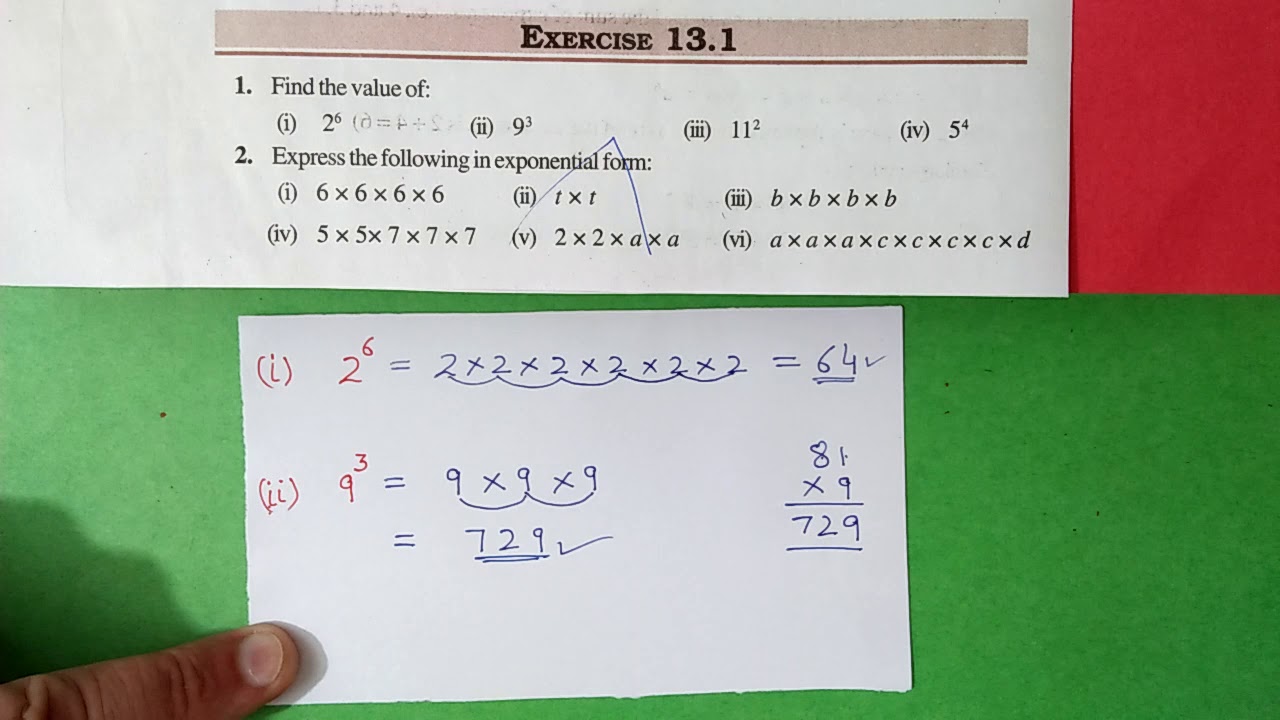 EXERCISE 13.1
1. Find the value of:
(i) 2⁶ (ii) 9³ (iii) 11² (iv) 5⁴
2. Express the following in exponential form:
(i) 6 × 6 × 6 × 6 (ii) t × t (iii) b × b × b × b
(iv) 5 × 5× 7 × 7 × 7 (v) 2 × 2 × a × a (vi) a × a × a × c × c × c × c × d
(i) 2⁶ = 2 × 2 × 2 × 2 × 2 × 2 = 64 ✓
(ii) 9³ = 9 × 9 × 9
= 729 ✓
81
× 9
729